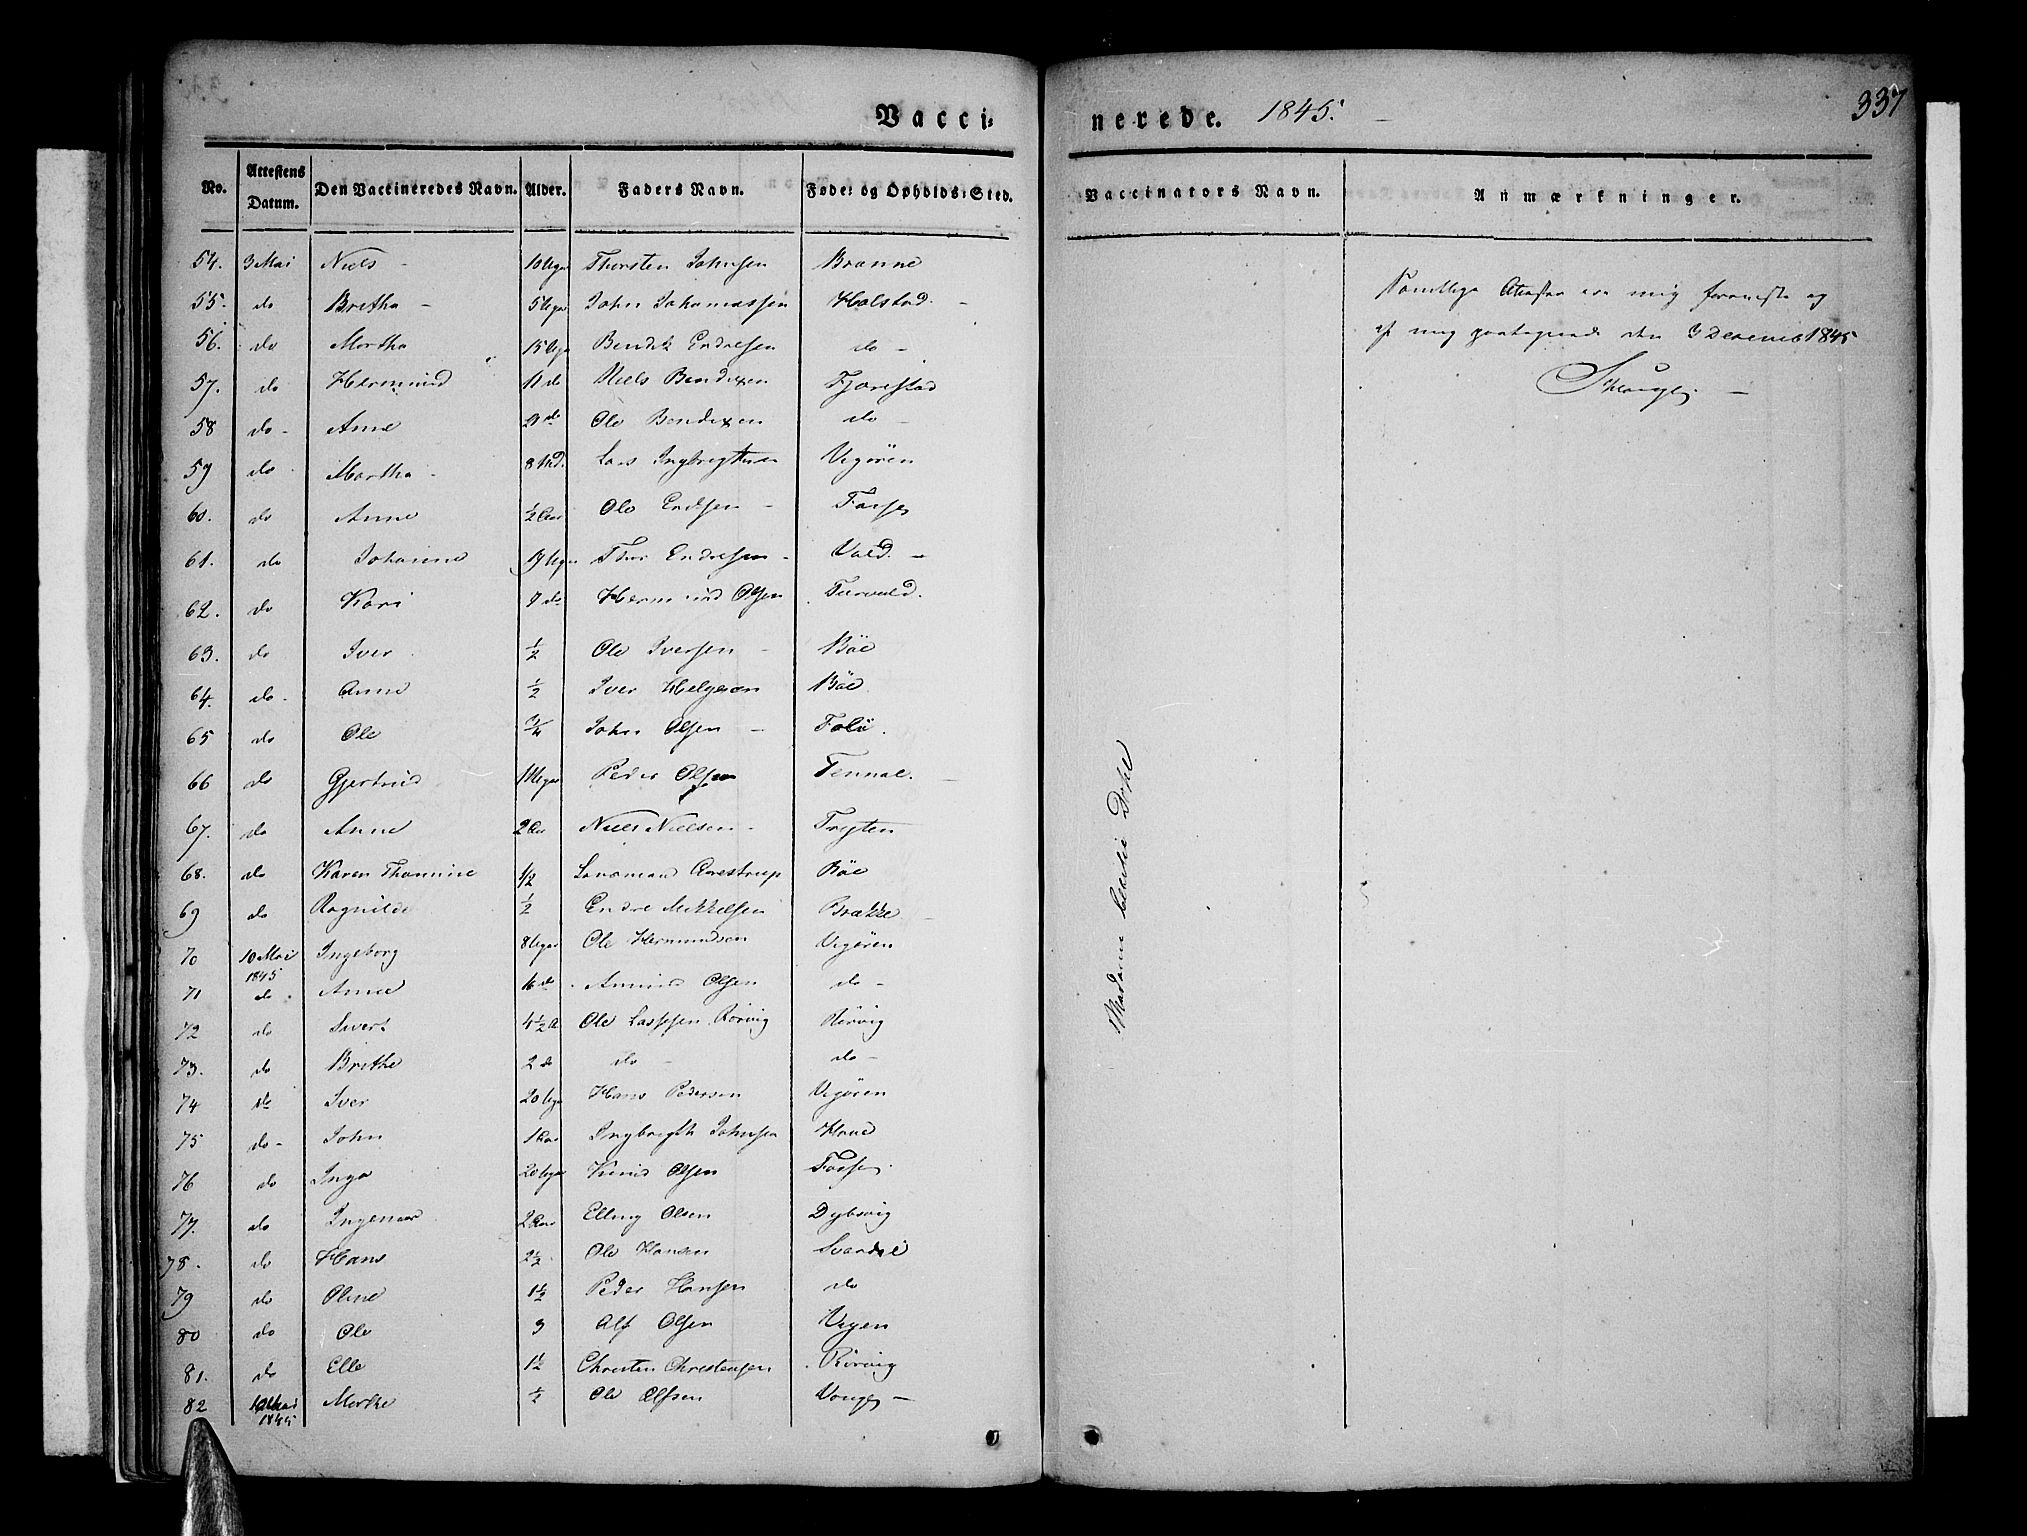 Vacci-
nerede. 1845.
337
No.
Attestens Datum.
Den Vaccineredes Navn.
Alder.
Faders Navn.
Føde- og Opholds-Sted.
Vaccinators Navn.
Anmærkninger.
54. 3 Mai Niels - 10 Uger Thorsten Johnsen Brænne
55. do Bretha - 5 Uger John Johannessen Holstad. -
56. do Martha 15 Uger Bendik Endresen do -
57. do Hermund 11 do Niels Bendixen Fjærestad
58 do - Anne 21 do Ole Bendixen do -
59 do Martha - 8 Md. Lars Ingbregtsen Vigøren
60. do Anne ½ Aar Ole Endsen - Fosse
61. do Johanne 19 Uger Thor Endresen - Vald. -
62. do Kari 9 do Hermund Olsen
63. do Iver ½ Ole Iversen - Böe
64. do - Anne ½ Iver Helgesen Böe
65 do Ole ¾ John Olsen -
66 do Gjertrud Uger Peder Olsen
67. do Anne 2 Aar Niels Nielsen - Trygten
68. do Karen Thomine 1/2 Lensmand Aarestrup Böe
69 do Ragnilde ½ Endre Mikkelsen Brække -
70 10 Mai 1845 Ingeborg 8 Uger Ole Hermundsen Vigøren
71 do Anne 16 do Amund Olsen do -
72 do Sivert 4½ A Ole Lassesen Rörvig Rörvig
73. do Brithe 2 do do - do -
74 do Iver 20 Uger Hans Pedersen Vigøren
75 do - John 1 Aar Ingbregth Johnsen Hove
76 do Inga 20 Uger Knud Olsen Fosse
77. do Ingemar 2 Aar Elling Olsen Dybsvig
78. do Hans 2½ Ole Hansen Svardal
79 do Oline 1½ Peder Hansen do
80 do Ole 3 Alf Olsen Vigen
81. do Elle 1½ Christen Christensen Rörvig
82 10 Mai 1845 Marthe ½ Ole Olfsen Vange -
Madame Dahl
Samtlige Atester ere mig foreviste og
af mig paategnede den 3 Decemb 1845